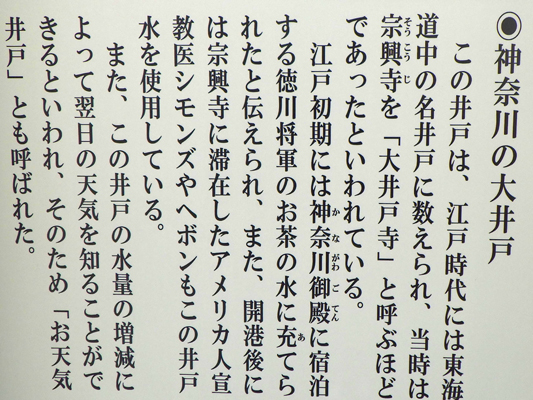 ◉神奈川の大井戸
この井戸は、江戸時代には東海
道中の名井戸に数えられ、当時は
宗興寺を「大井戸寺」と呼ぶほど
であったといわれている。
江戸初期には神奈川御殿に宿泊
する徳川将軍のお茶の水に充てら
れたと伝えられ、また、開港後に
は宗興寺に滞在したアメリカ人宣
教医シモンズやヘボンもこの井戸
水を使用している。
また、この井戸の水量の増減に
よって翌日の天気を知ることがで
きるといわれ、そのため「お天気
井戸」とも呼ばれた。